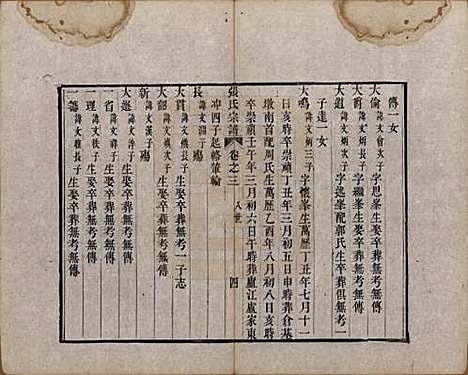 傳一女
大倫諱文會次子字思峯生娶卒葬無考無傳
大爵諱文炳長子字繼峯生娶卒葬無考無傳
大道諱文炳次子字遙峯配郭氏生卒葬俱無考一
子達一女
大鳴諱文炳三子字懷峯生萬歷丁丑年七月十一
日亥時卒崇禎丁丑年三月初五日申時葬倉基
墩南首配周氏生萬歷乙酉年八月初八日亥時
卒崇禎壬午年三月初六日午時葬廬江盧家東
張氏宗譜 卷之三 八世 四
冲四子起輅輦輪
長諱文淵子殤
大貫諱文儀長子生娶卒葬無考一子志
大韶諱文儀次子生娶卒葬無考無傳
新諱文漢子殤
大選諱文洋子生娶卒葬無考無傳
一省諱文 子生娶卒葬無考無傳
一理諱文 次子生娶卒葬無考無傳
一籌諱文 長子生娶卒葬無考無傳